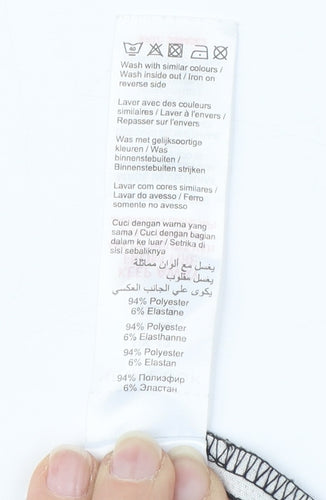 40
Wash with similar colours /
Wash inside out / Iron on
reverse side
Laver avec des couleurs
similaires / Laver à l'envers /
Repasser sur l'envers
Was met gelijksoortige
kleuren / Was
binnenstebuiten /
Binnenstebuiten strijken
Lavar com cores similares /
Lavar do avesso / Ferro
somente no avesso
Cuci dengan warna yang
sama / Cuci dengan bagian
dalam ke luar / Setrika di
sisi sebaliknya
يغسل مع ألوان مماثلة
يغسل مقلوب
يكوى علي الجانب العكسي
94% Polyester
6% Elastane
94% Polyester
6% Elasthanne
94% Polyester
6% Elastan
94% Полиэфир
6% Эластан